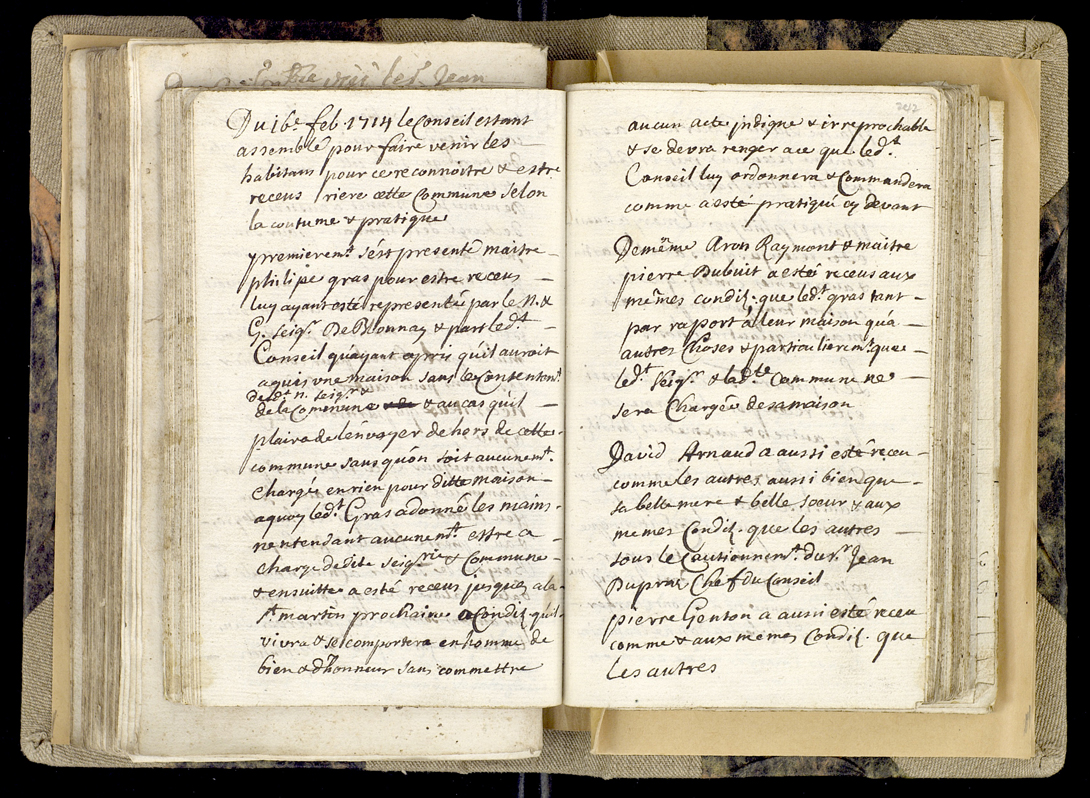 Du 16e feb. 1714 le Conseil estant
assemblé pour faire venir les
habitans pour ce reconnoitre & estre
receus riere cette Commune selon
la coutume & pratique
premierem.t s'est presenté maitre
philipe gras pour estre receus
luy ayant esté representé par le N. &
G. seig.r De Blonnay & par led.t
Conseil qu'ayant apris qu'il auroit
aquis vne maison sans le Consentem.t
dud.t n. seig.r &
de la Commune & au cas qu'il
plaira de l'envoyer dehors de cette
commune sans qu'on soit aucunem.t
Chargé en rien pour ditte maison
a quoy led.t Gras a donné les mains
n'entendant aucunem.t estre a
charge de dite seig.rie & Commune
& ensuitte a esté receus jusques a la
s.t martin prochaine a Condi.on qu'il
vivra & se comportera en homme de
bien & d'honneur sans commettre
aucun acte indigne & irreprochable
& se devra renger a ce que led.t
Conseil luy ordonnera & Commandera
comme a esté pratiqué cy devant
De même Aron Raymont & maitre
pierre Dubuit a esté receus aux
mêmes condi.on que led.t gras tant
par raport à leur maison qu'a
autres Choses & particulierem.t que
led.t seig.r & lad.te Commune ne
sera Chargée de sa maison
David Arnaud a aussi esté receu
comme les autres aussi bien que
sa belle mere & belle soeur & aux
memes Condi.on que les autres
sous le Cautionnem.t du s.r Jean
Dupraz Chef du Conseil
pierre Genton a aussi esté receu
comme & aux mêmes Condi.on que
les autres